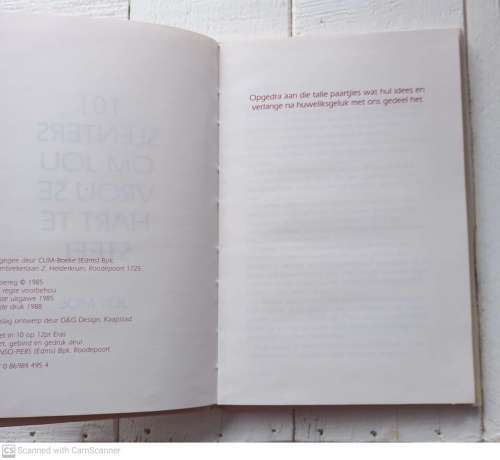 101
SLENTERS
OM JOU
VROU SE
HART TE
STEEL
deur CUM-Boeke (Edms) Bpk.
2, Helderkruin, Roodepoort 1725
piereg © 1985
regte voorbehou
ste uitgawe 1985
de druk 1988
slag ontwerp deur G&G Design, Kaapstad
et in 10 op 12pt Eras
et, gebind en gedruk deur
NSO-PERS (Edms) Bpk. Roodepoort
0 86984 495 4
Opgedra aan die talle paartjies was hul idees en
verlange na huweliksgeluk met ons gedeel het
CS Scanned with CamScanner